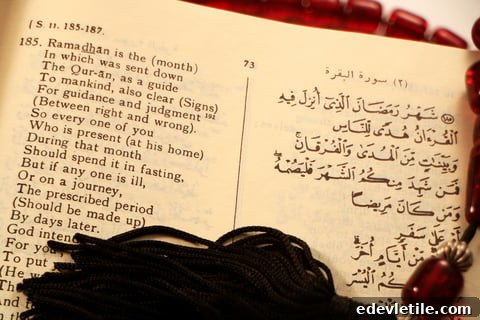 [ S. II. 185-187.
185. Ramadhān is the (month)
In which was sent down
The Qur-ān, as a guide
To mankind, also clear (Signs)
For guidance and judgment 192
(Between right and wrong).
So every one of you
Who is present (at his home)
During that month
Should spend it in fasting,
But if any one is ill,
Or on a journey,
The prescribed period
(Should be made up)
By days later.
God
For
To put
(He
73
(٢) سورة البقرة
شَهْرُ رَمَضَانَ الَّذِىٓ أُنْزِلَ فِيهِ
الْقُرْءَانُ هُدًى لِلنَّاسِ
وَبَيِّنٰتٍ مِّنَ الْهُدٰى وَالْفُرْقَانِ
فَمَنْ شَهِدَ مِنْكُمُ الشَّهْرَ فَلْيَصُمْهُ
وَمَنْ كَانَ مَرِيضًا
أَوْ عَلٰى سَفَرٍ
مِّنْ أَيَّامٍ أُخَرَ
الْيُسْرَ
edevletile.com